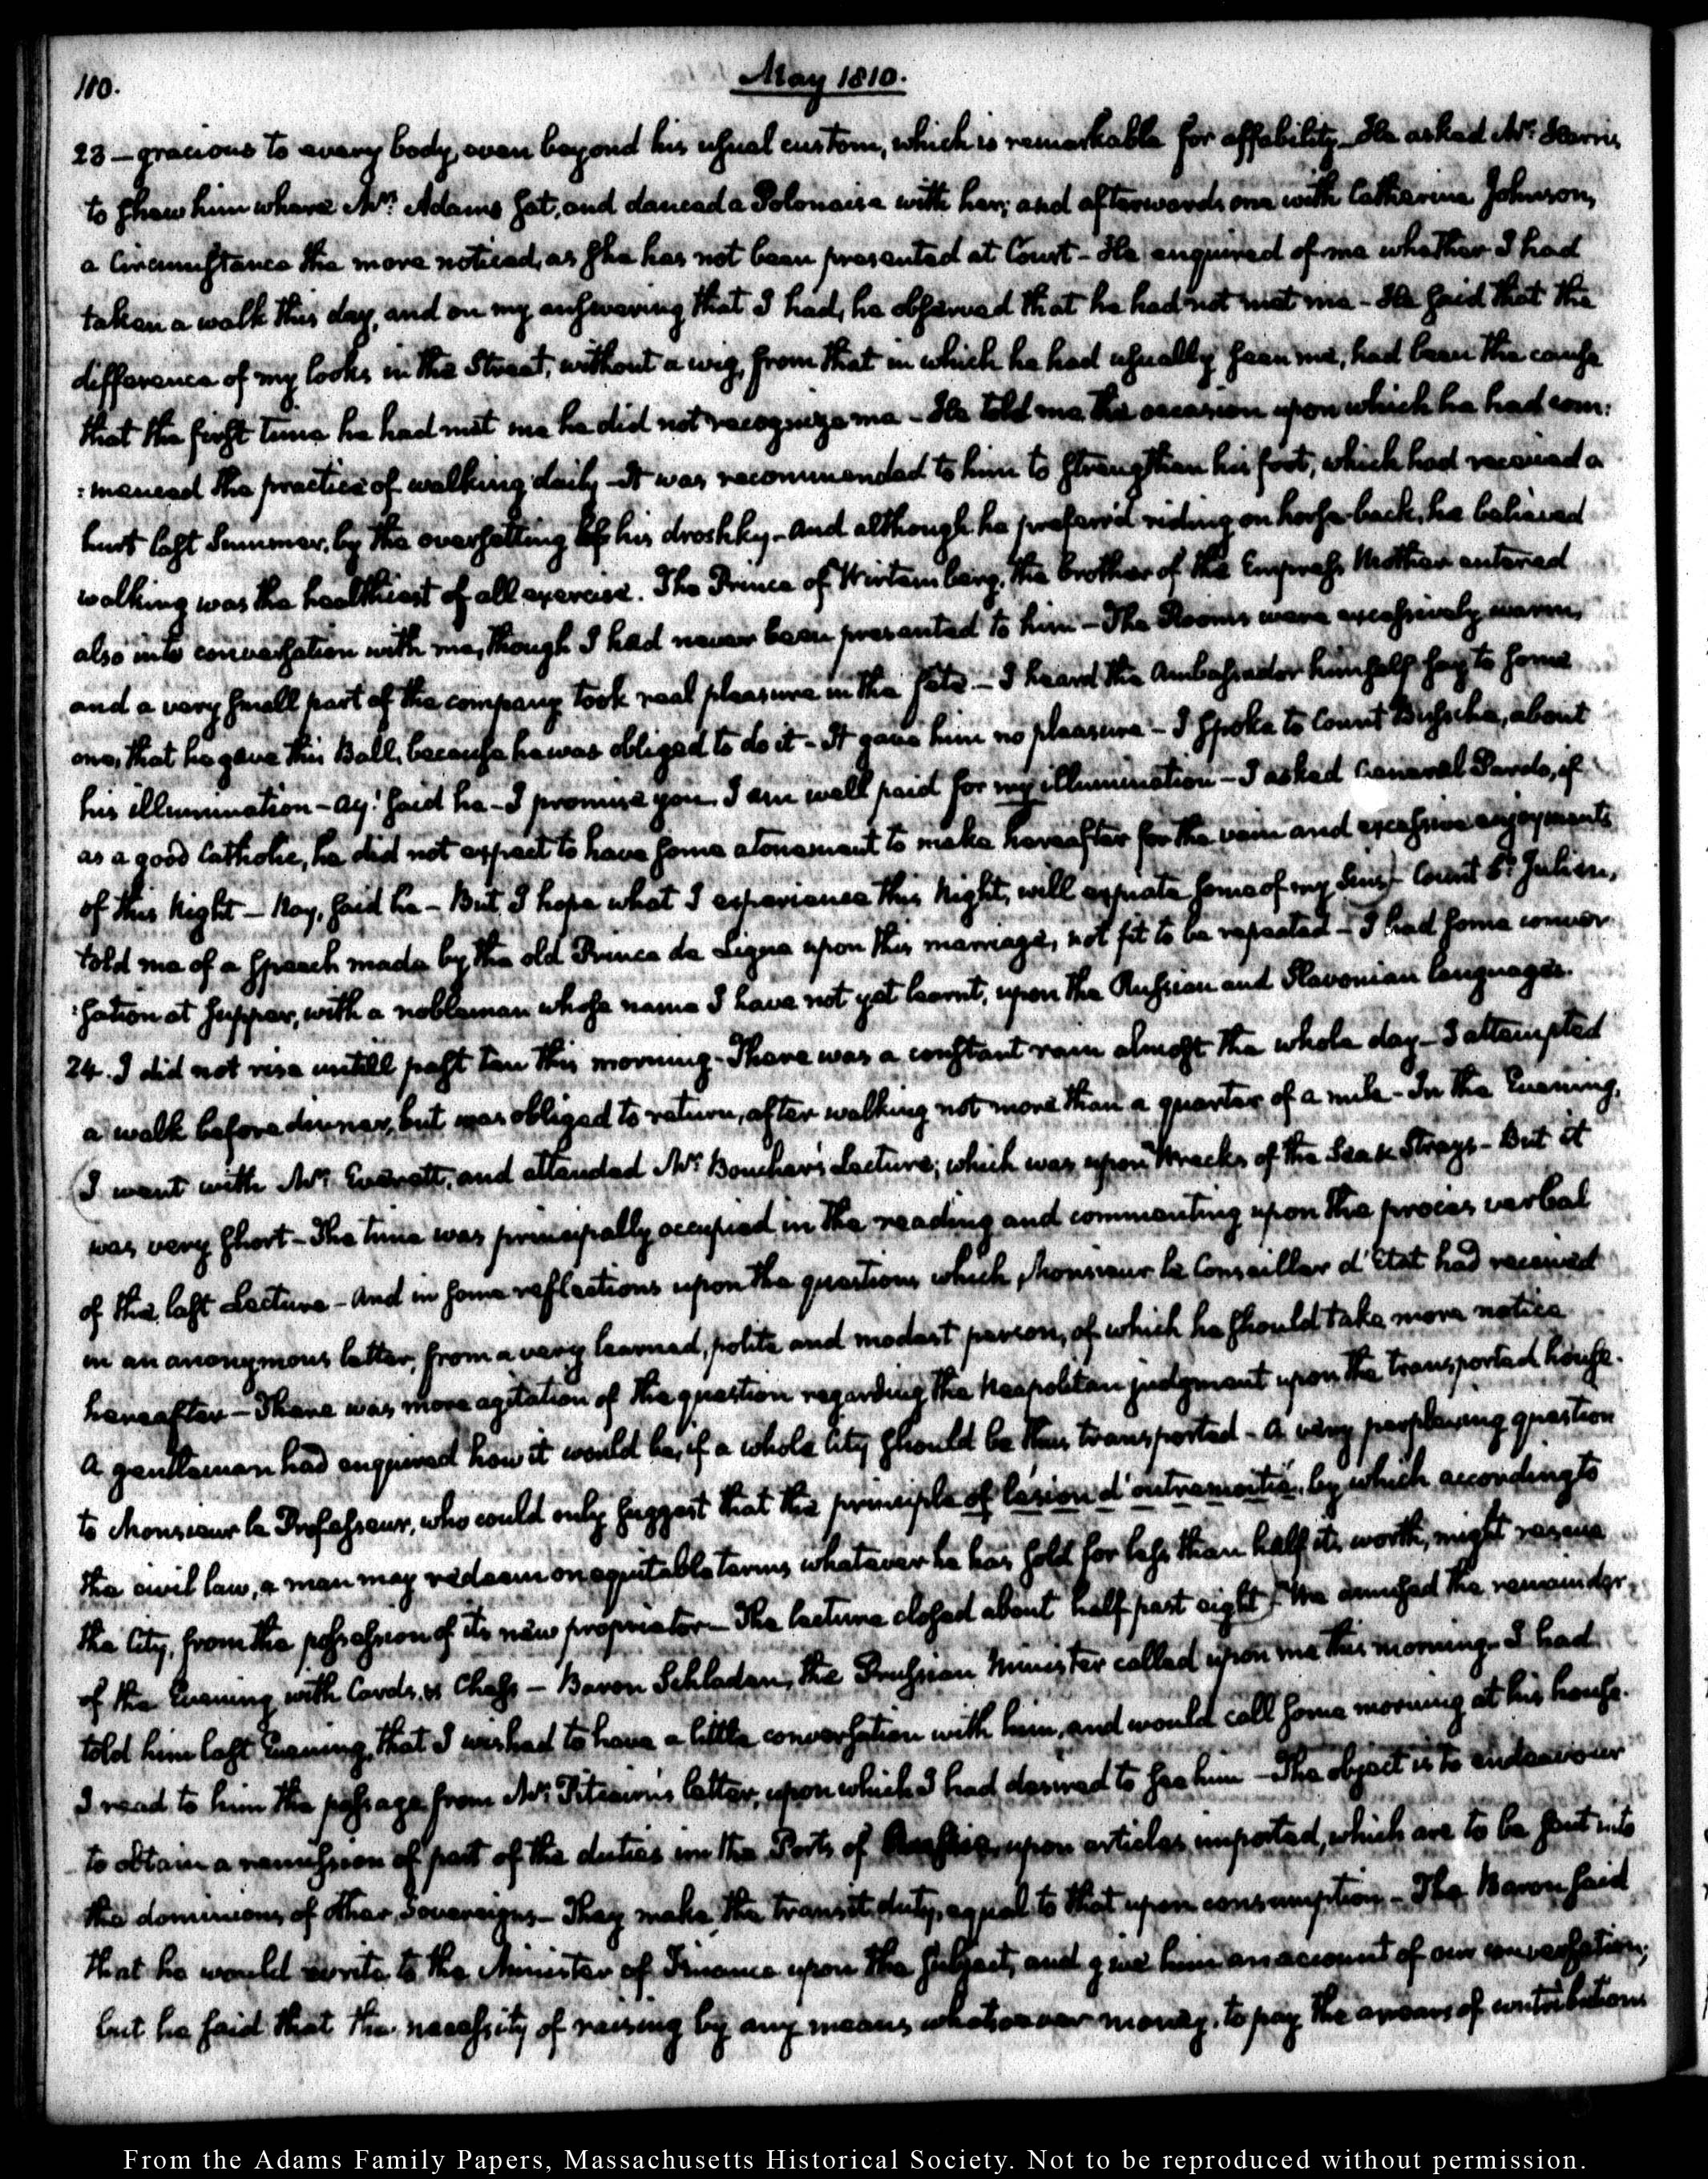 110.
May 1810.
23 – gracious to every body, even beyond his usual custom, which is remarkable for affability – He asked Mr. Harris,
to shew him where Mrs. Adams sat, and danced a Polonaise with her; and afterwards one with Catherine Johnson,
a Circumstance the more noticed, as she has not been presented at Court – He enquired of me whether I had
taken a walk this day, and on my answering that I had, he observed that he had not met me – He said that the
difference of my looks in the Street, without a wig, from that in which he had usually seen me, had been the cause
that the first time he had met me he did not recognize me – He told me the occasion upon which he had com:
:menced the practice of walking daily – It was recommended to him to strengthen his foot, which had received a
hurt last Summer, by the oversetting of his droshky – And although he preferr'd riding on horse-back, he believed
walking was the healthiest of all exercise. The Prince of Wirtemberg, the brother of the Empress Mother entered
also into conversation with me, though I had never been presented to him – The Rooms were excessively warm,
and a very small part of the company took real pleasure in the fete – I heard the Ambassador himself say to some
one, that he gave this Ball, because he was obliged to do it – It gave him no pleasure – I spoke to Count Bussche, about
his illumination – Ay! said he – I promise you I am well paid for my illumination – I asked General Pardo, if
as a good Catholic, he did not expect to have some atonement to make hereafter for the vain and excessive enjoyments
of this Night – Nay, said he – But I hope what I experience this Night, will expiate some of my Sins – Count St. Julien,
told me of a speech made by the old Prince de Ligne upon this marriage, not fit to be repeated – I had some conver
:sation at supper, with a nobleman whose name I have not yet learnt, upon the Russian and Slavonian languages.
24. I did not rise untill past ten this morning. There was a constant rain almost the whole day – I attempted
a walk before dinner, but was obliged to return, after walking not more than a quarter of a mile – In the Evening,
(I went with Mr. Everett, and attended Mr. Boucher's Lecture; which was upon Wrecks of the Sea & Strays – But it
was very short – The time was principally occupied in the reading and commenting upon the procès verbal
of the last Lecture – And in some reflections upon the questions which Monsieur le Conseiller d'Etat had received
in an anonymous letter, from a very learned, polite and modest person, of which he should take more notice
hereafter – There was more agitation of the question regarding the Neapolitan judgment upon the transported house.
A gentleman had enquired how it would be, if a whole City should be thus transported – A very perplexing question
to Monsieur le Professeur, who could only suggest that the principle of lesion d'outremoitié, by which according to
the civil law, a man may redeem on equitable terms whatever he has sold for less than half its worth, might rescue
the City, from the possession of its new proprietor – The lecture closed about half past eight) We amused the remainder
of the Evening with Cards, & Chess – Baron Schladen, the Prussian Minister called upon me this morning – I had
told him last Evening, that I wished to have a little conversation with him, and would call some morning at his house.
I read to him the passage from Mr. Pitcairn's letter, upon which I had desired to see him – The object is to endeavour
to obtain a remission of part of the duties in the Ports of upon articles imported, which are to be sent into
the dominions of other Sovereigns – They make the transit duty, equal to that upon consumption – The Baron said
that he would write to the Minister of Finance upon the subject, and give him an account of our conversation;
but he said that the necessity of raising by any means whatsoever money, to pay the arrears of contributions
From the Adams Family Papers, Massachusetts Historical Society. Not to be reproduced without permission.